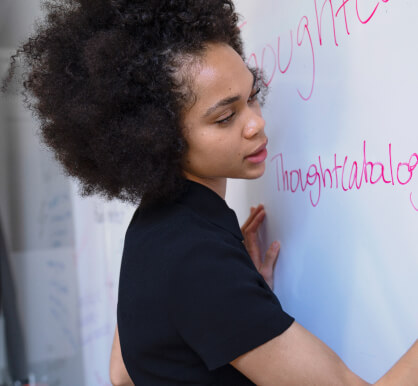 Thought Ca
Thought Cabalog